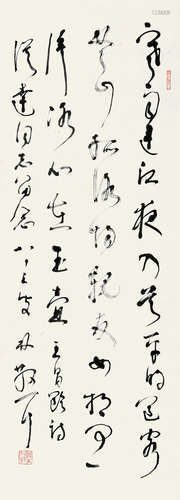 寒雨连江夜入吴平明送客
楚山孤洛阳亲友如相问一
片冰心在玉壶王昌龄诗
从达同志留念八十三叟林散耳